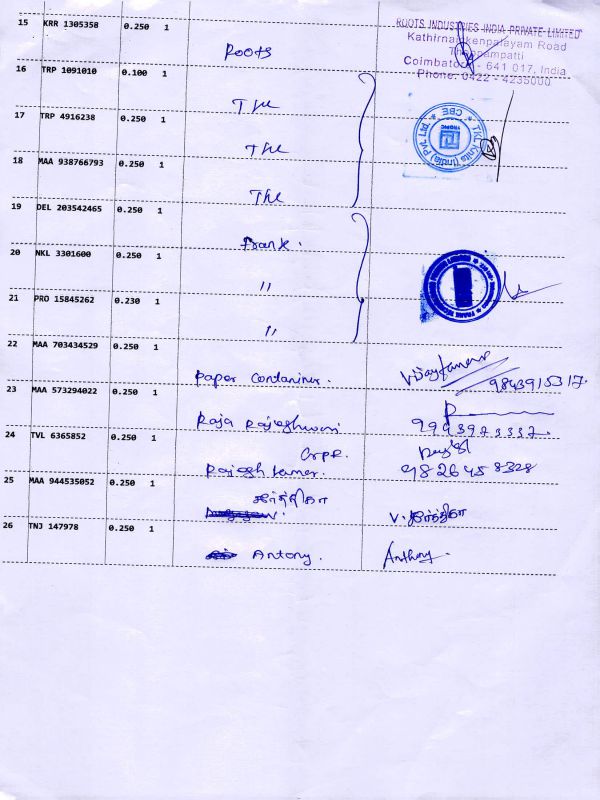 15 KRR 1305358 0.250 1
Roots
ROOTS INDUSTRIES INDIA PRIVATE LIMITED
Kathirnaickenpalayam Road
Thoppampatti
Coimbatore - 641 017, India
Phone: 0422 - 4235000
16 TRP 1091010 0.100 1
TKL
17 TRP 4916238 0.250 1
TKL
TKL Knits (India) Pvt. Ltd. * CBE *
TROPIC
18 MAA 938766793 0.250 1
TKL
19 DEL 203542465 0.250 1
Frank.
20 NKL 3301600 0.250 1
"
21 PRO 15845262 0.230 1
"
22 MAA 703434529 0.250 1
Paper Container. Vijaykumar
9843915317.
23 MAA 573294022 0.250 1
Raja Rajeshwari
9993973337.
24 TVL 6365852 0.250 1
CrPR.
Rajesh kumar. 9826458328
25 MAA 944535052 0.250 1
26 TNJ 147978 0.250 1
Antony. Anthony.